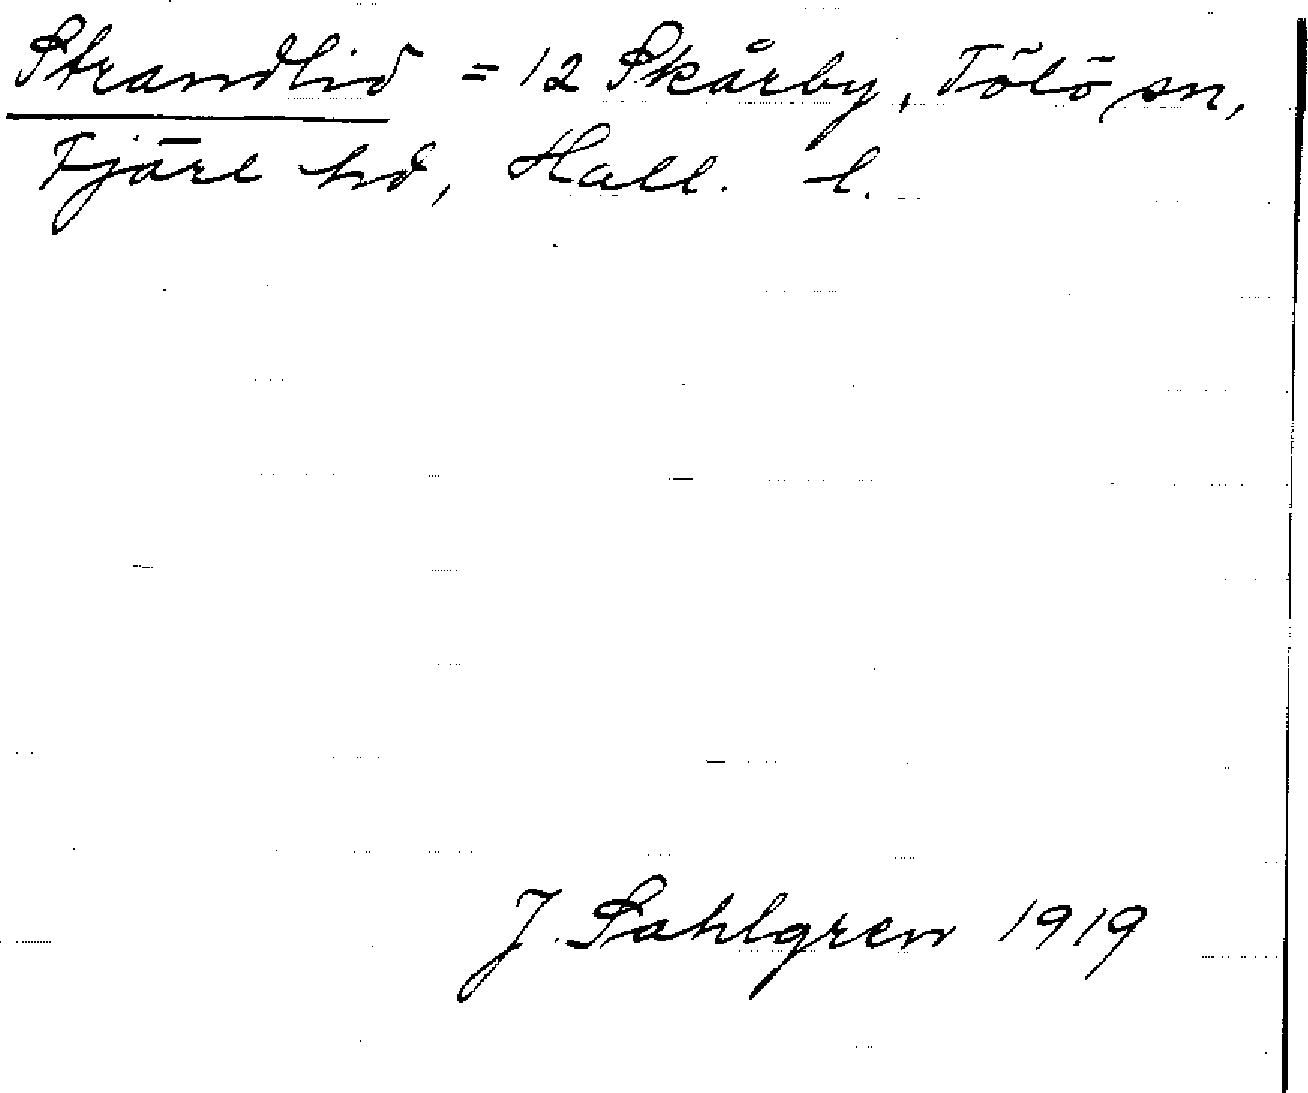 Strandlid = 12 Skårby, Tölö sn,
Fjäre hd, Hall. l.
J. Sahlgren 1919